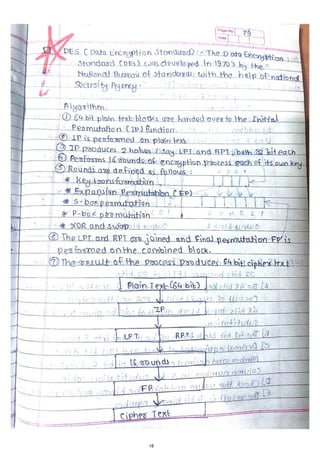 Page No. 75
Date
DES [Data Encryption Standard) :- The Data Encryption
Standard (DES), was developed in 1970's by the
National Bureau of Standards, with the help of national
Security Agency.
Algorithm.
① 64 bit plain text blocks are handed over to the Initial
Permutation (IP) function.
② IP is performed on plain text
③ IP produces 2 halves : say LPT and RPT, both 32 bit each
④ Performs 16 rounds of encryption process each of its own key.
⑤ Rounds are defined as follows :
* Key transformation
* Expansion Permutation (EP)
* S-box permutation
* P-box permutation
* XOR and swap
⑥ The LPT and RPT are joined and Final permutation FP is
performed on the combined block.
⑦ The result of the process produces 64 bit cipher text
Plain Text (64 bit)
IP
LPT RPT
16 rounds
FP
Cipher Text
18